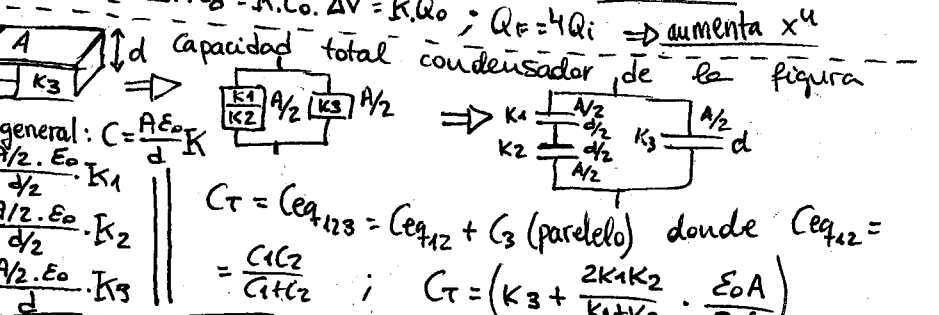 = K.C₀.ΔV = K.Q₀ ; Q_F = 4Qi ⇒ aumenta x4
A d Capacidad total condensador de la figura
K3 ⇒ K1 K2 A/2 K3 A/2 ⇒ K1 A/2 d/2 K2 d/2 A/2 K3 A/2 d
general: C = Aε₀/d K
A/2.ε₀/d/2 . K1
A/2.ε₀/d/2 . K2
A/2.ε₀/d . K3
C_T = Ceq₁₂₃ = Ceq₁₂ + C₃ (paralelo) donde Ceq₁₂ =
= C1C2/C1+C2 ; C_T = (K3 + 2K1K2/K1+K2 . ε₀A)